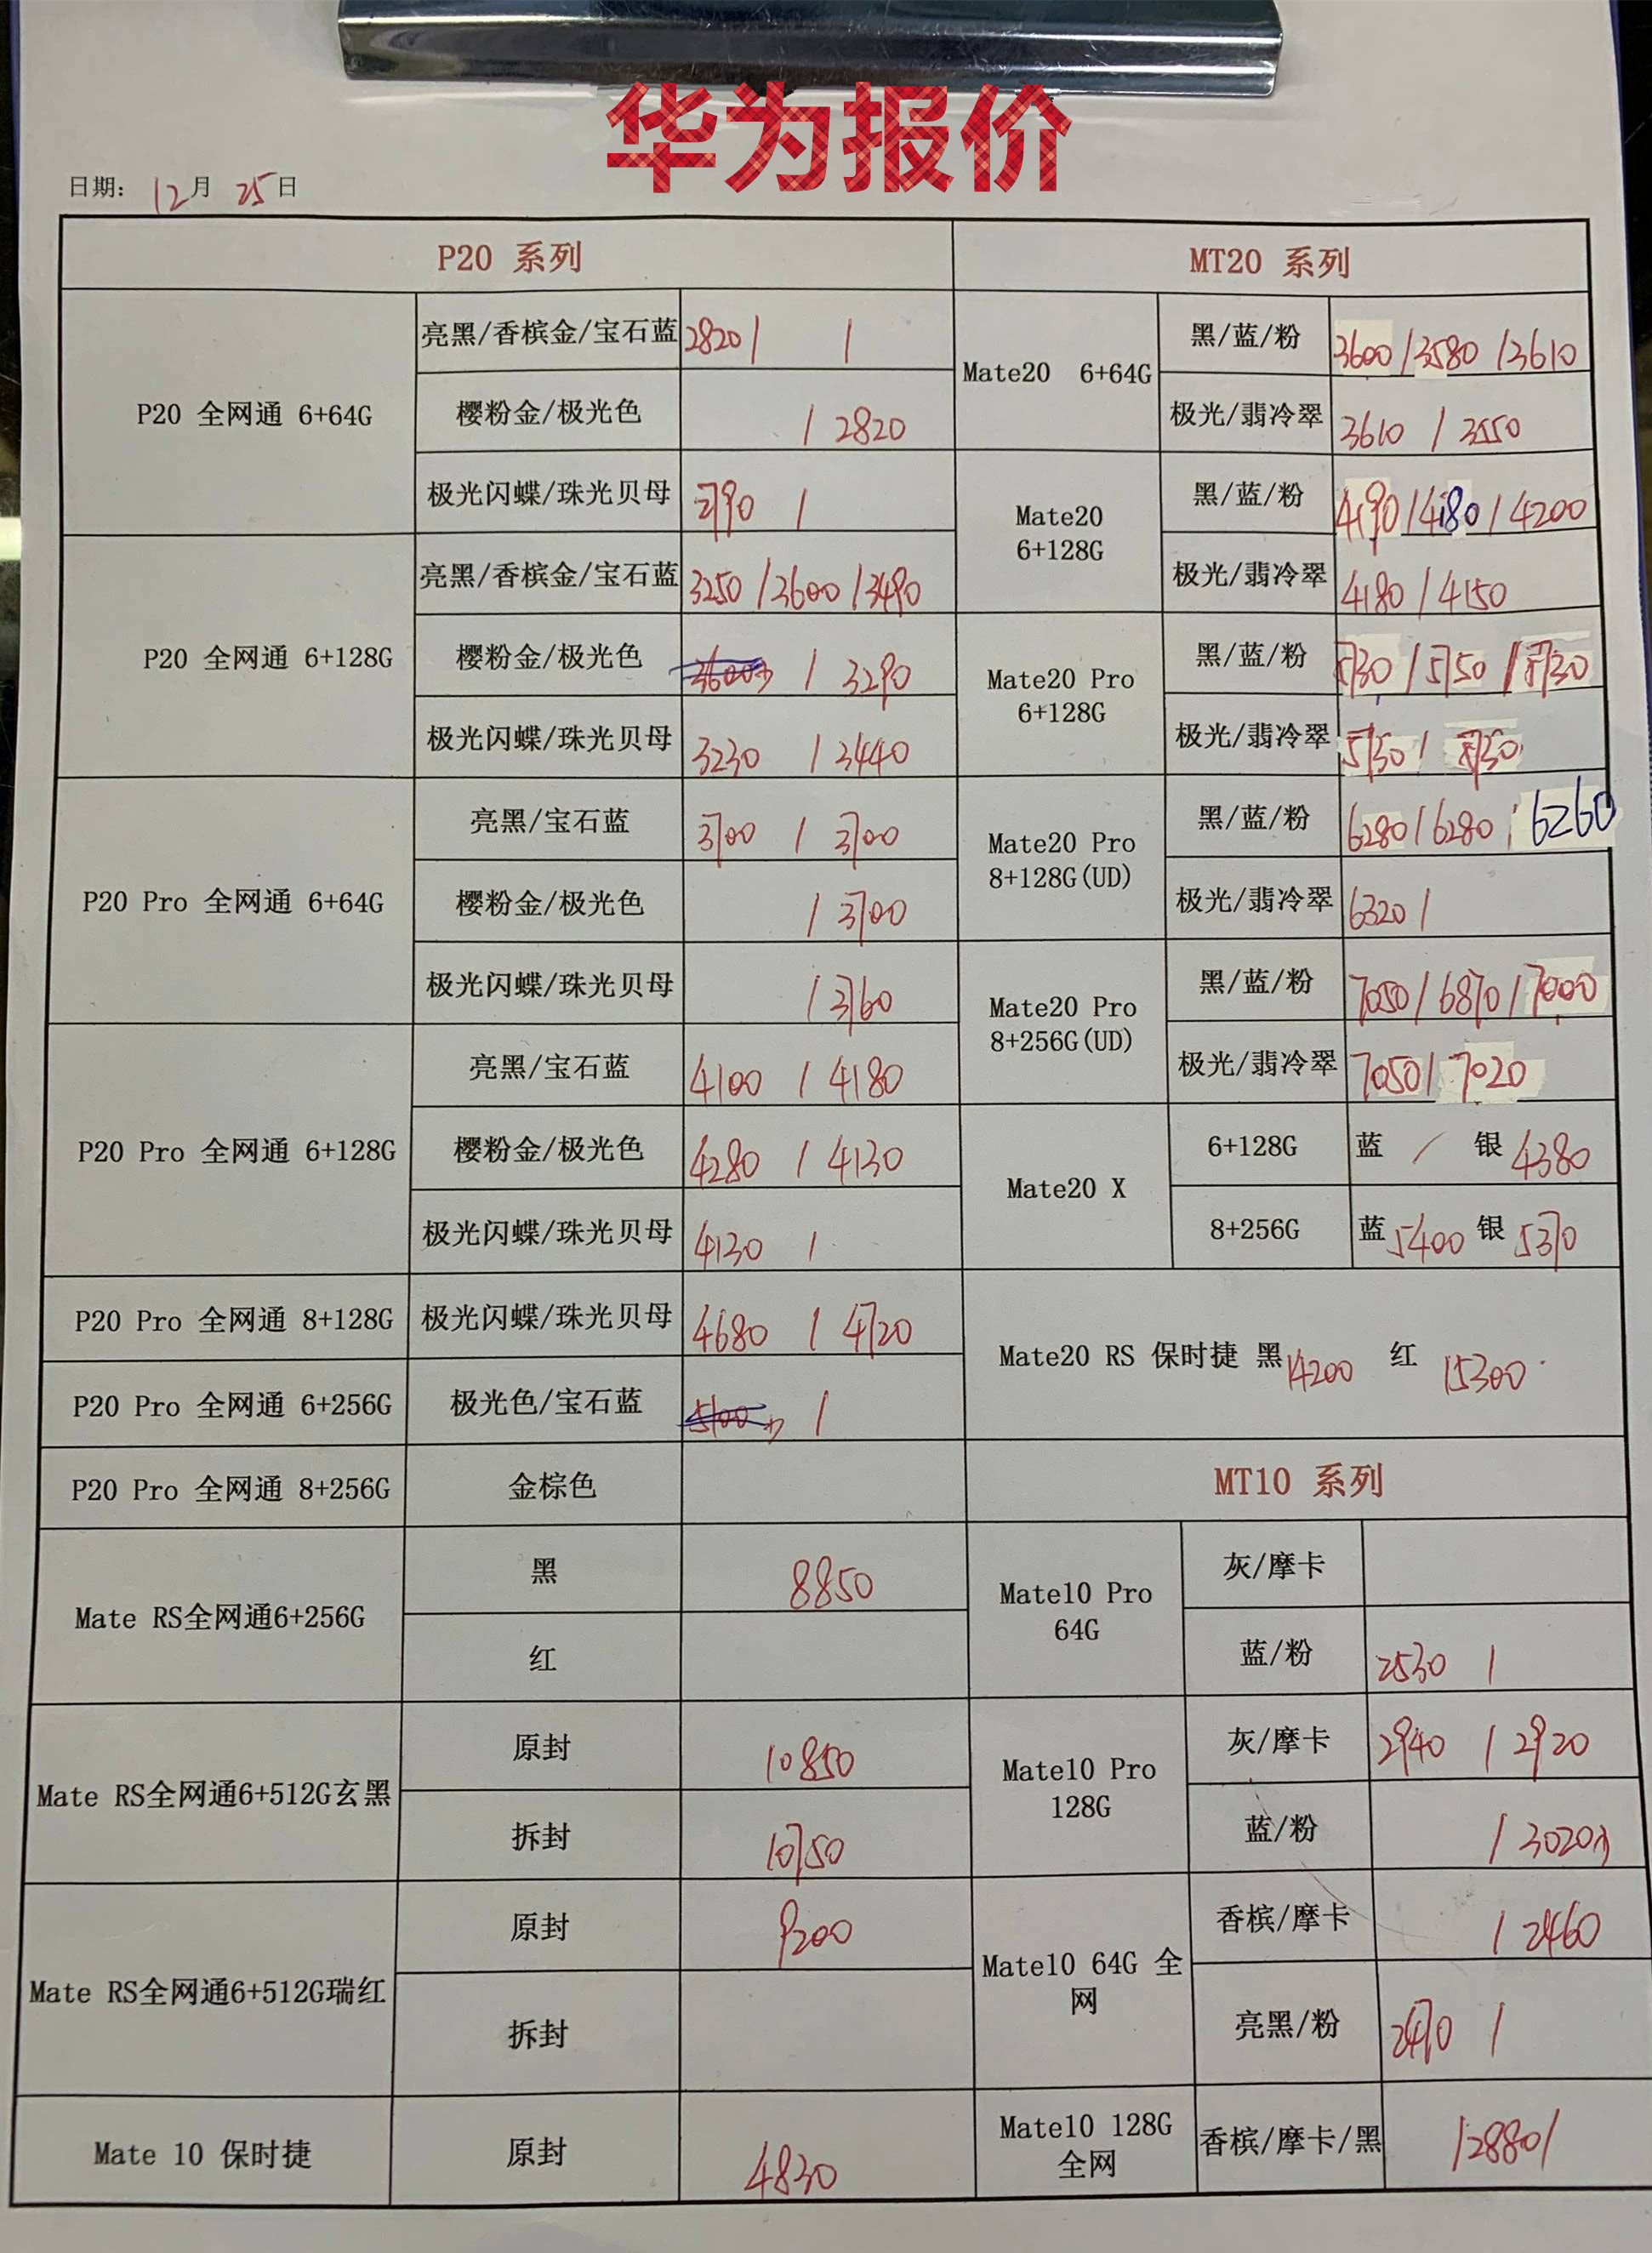 华为报价
日期: 12月 25日
P20 系列
P20 全网通 6+64G
亮黑/香槟金/宝石蓝 2820 / /
樱粉金/极光色 / 2820
极光闪蝶/珠光贝母 2790 /
P20 全网通 6+128G
亮黑/香槟金/宝石蓝 3250 / 3600 / 3490
樱粉金/极光色 / 3290
极光闪蝶/珠光贝母 3230 / 3440
P20 Pro 全网通 6+64G
亮黑/宝石蓝 3700 / 3700
樱粉金/极光色 / 3700
极光闪蝶/珠光贝母 / 3760
P20 Pro 全网通 6+128G
亮黑/宝石蓝 4100 / 4180
樱粉金/极光色 4280 / 4130
极光闪蝶/珠光贝母 4130 /
P20 Pro 全网通 8+128G 极光闪蝶/珠光贝母 4680 / 4720
P20 Pro 全网通 6+256G 极光色/宝石蓝 /
P20 Pro 全网通 8+256G 金棕色
Mate RS全网通6+256G
黑 8850
红
Mate RS全网通6+512G玄黑
原封 10850
拆封 10750
Mate RS全网通6+512G瑞红
原封 9200
拆封
Mate 10 保时捷 原封 4830
MT20 系列
Mate20 6+64G
黑/蓝/粉 3600 / 3580 / 3610
极光/翡冷翠 3610 / 3550
Mate20
6+128G
黑/蓝/粉 4190 / 4180 / 4200
极光/翡冷翠 4180 / 4150
Mate20 Pro
6+128G
黑/蓝/粉 5730 / 5750 / 5730
极光/翡冷翠 5730 / 5730
Mate20 Pro
8+128G(UD)
黑/蓝/粉 6280 / 6280 / 6260
极光/翡冷翠 6320 /
Mate20 Pro
8+256G(UD)
黑/蓝/粉 7050 / 6870 / 7000
极光/翡冷翠 7050 / 7020
Mate20 X
6+128G 蓝 / 银 4380
8+256G 蓝 5400 银 5370
Mate20 RS 保时捷 黑 14200 红 15300
MT10 系列
Mate10 Pro
64G
灰/摩卡
蓝/粉 2530 /
Mate10 Pro
128G
灰/摩卡 2940 / 2920
蓝/粉 / 3020
Mate10 64G 全
网
香槟/摩卡 / 2460
亮黑/粉 2470 /
Mate10 128G
全网
香槟/摩卡/黑 / 2880 /